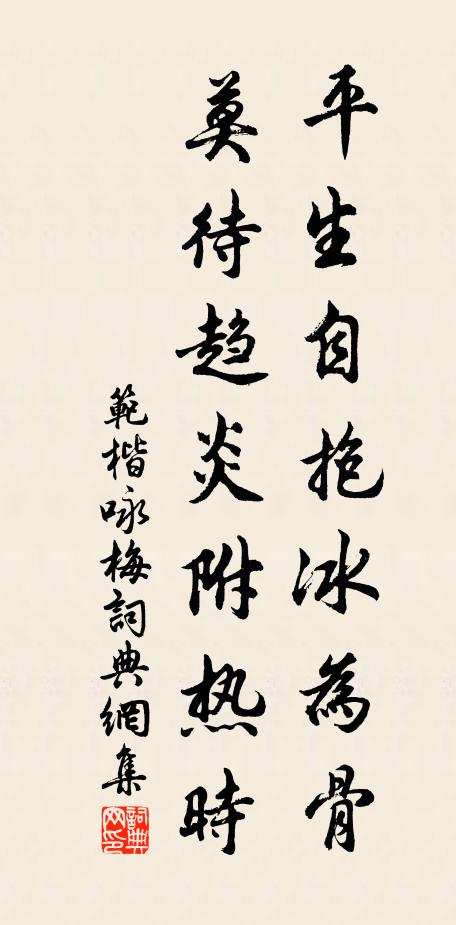 平生自抱冰為骨
莫待趨炎附热時
範楷咏梅詞典網集
詞典網印